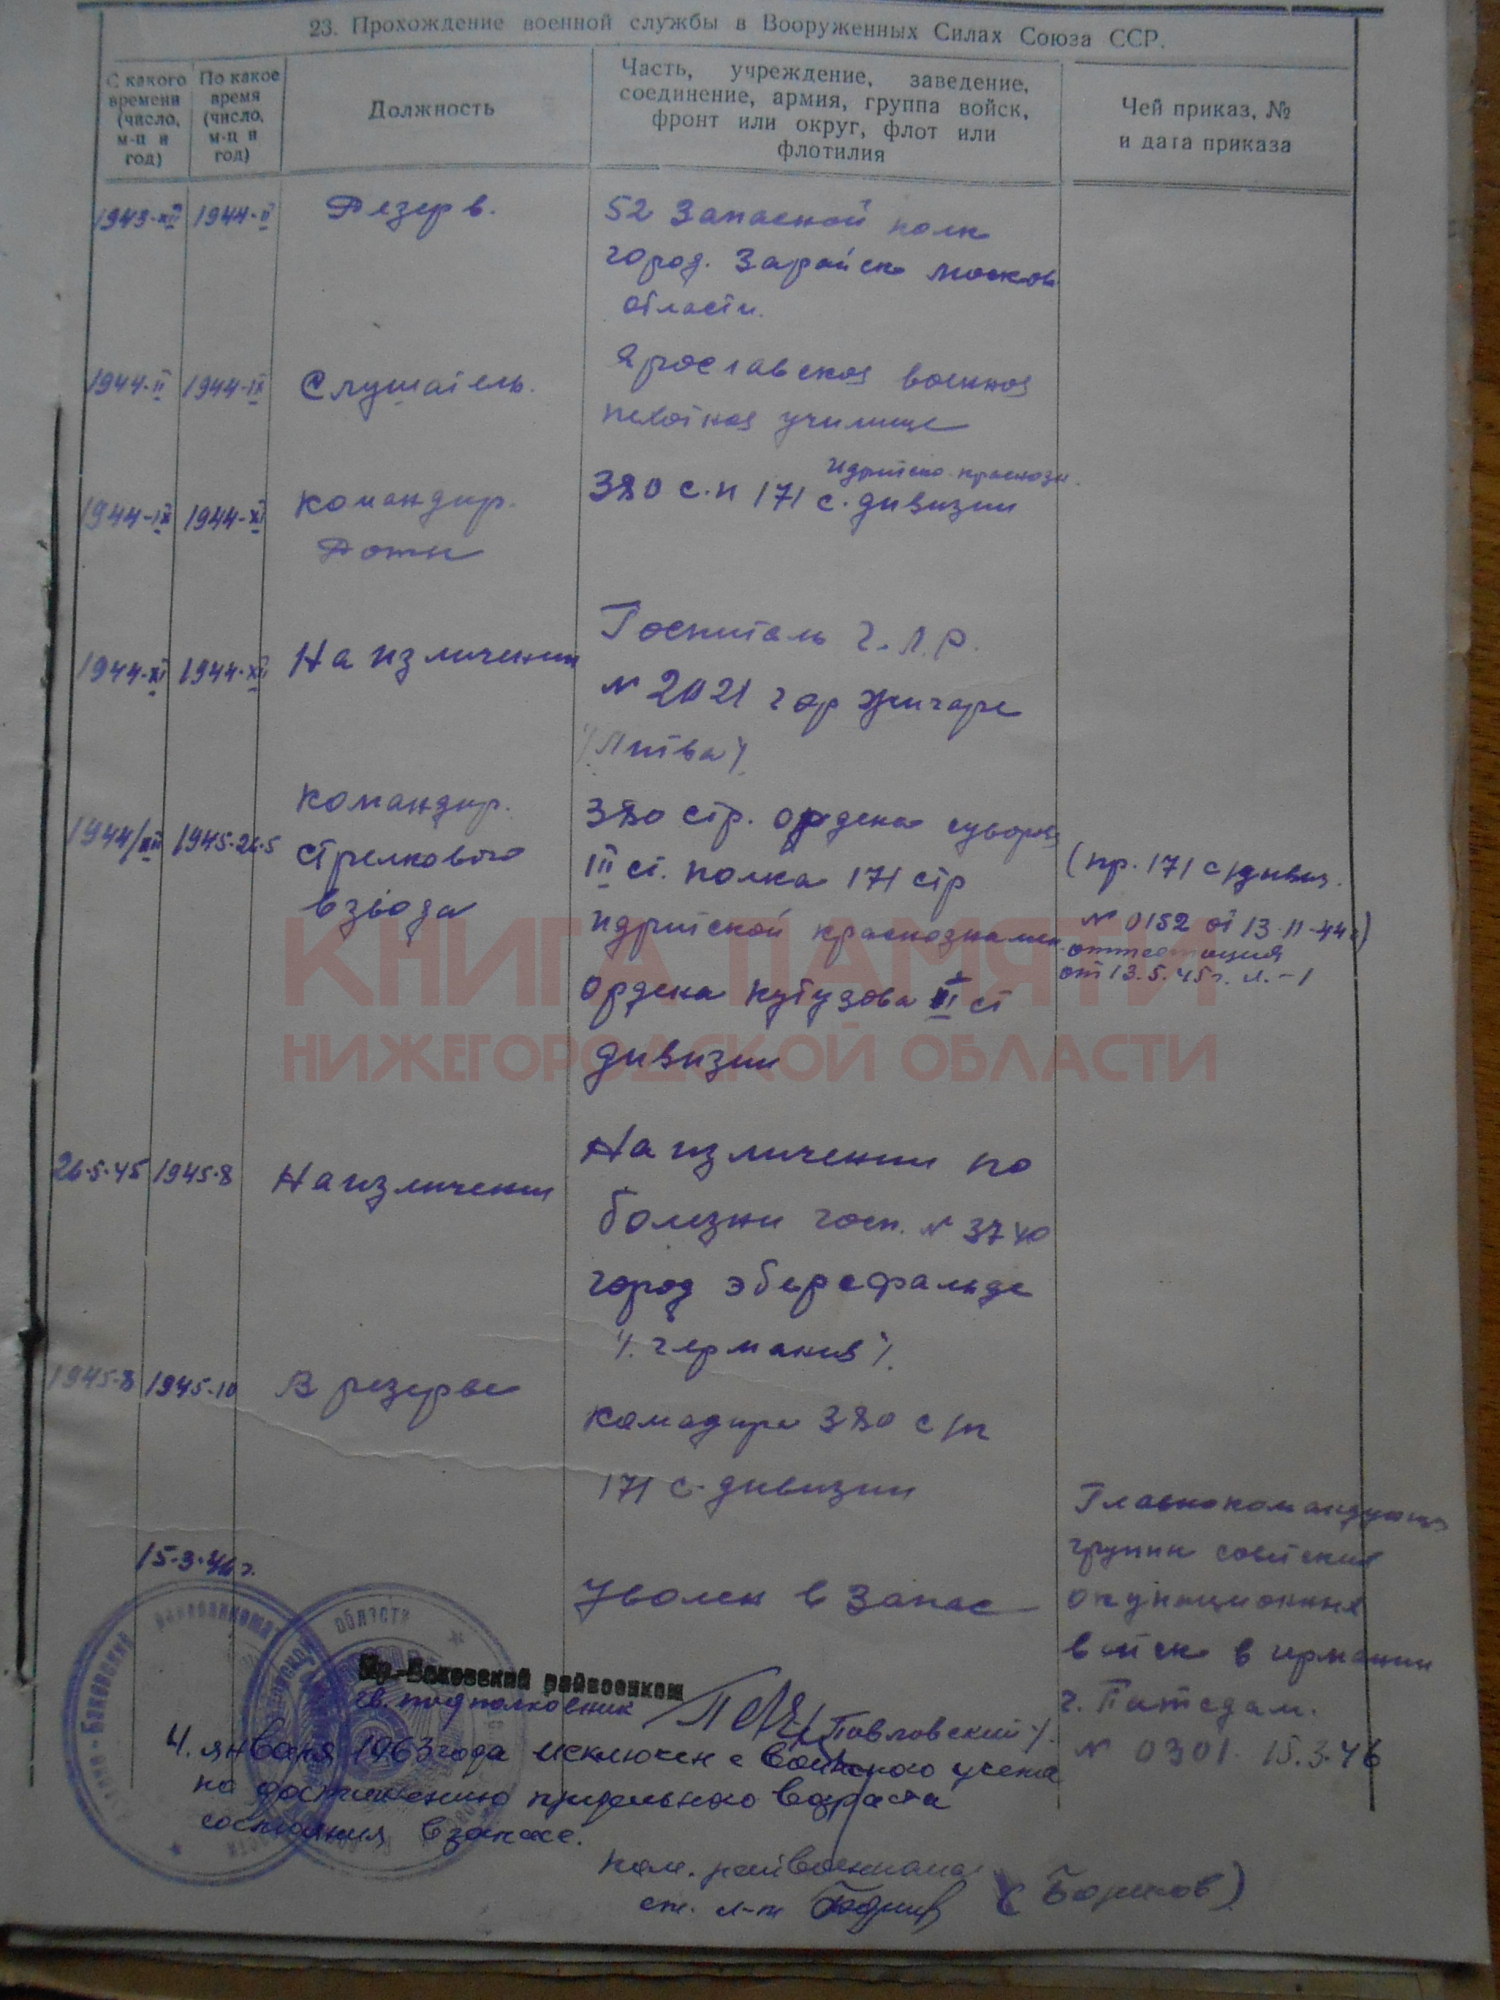 23. Прохождение военной службы в Вооруженных Силах Союза ССР.
С какого времени (число, м-ц и год)
По какое время (число, м-ц и год)
Должность
Часть, учреждение, заведение,
соединение, армия, группа войск,
фронт или округ, флот или
флотилия
Чей приказ, №
и дата приказа
1943-XII 1944-II Резерв. 52 Запасной полк
город. Зарайск Москов
области.
1944-II 1944-IX Слушатель. Ярославское военное
пехотное училище
Идрицко-краснозн.
1944-IX 1944-XI Командир. 380 с.п 171 с. дивизии
Роты
1944-XI 1944-XII На изличении Госпиталь Г.Л.Р.
№ 2021 гор Жигаре
/Литва/.
1944/XII 1945-26-5 Командир. 380 стр. ордена суворова
стрелкового III ст. полка 171 стр (пр. 171 с/дивиз.
взвода Идрицкой краснознамен. № 0152 от 13-11-44г)
аттестация
ордена Кутузова II ст от 13.5.45г. л.-1
дивизии
26-5-45 1945-8 На изличении На изличении по
болезни госп. № 3740
город эберсфальде
/. германия /.
1945-8 1945-10 В резерве
Комадира 380 с/п
171 с. дивизии
Главнокомандующ
15-3-46г. Уволен в Запас групп советских
окупационных
войск в германии
г. Патсдам.
№ 0301. 15.3.46
Кр-Баковский райвоенком
гв. подполковник /Павловский/.
4. января 1963 года исключен с воинского учета
по достижению предельного возраста
состояния в запасе.
пом. райвоенкома
ст. л-т (Борисов)
КНИГА ПАМЯТИ
НИЖЕГОРОДСКОЙ ОБЛАСТИ